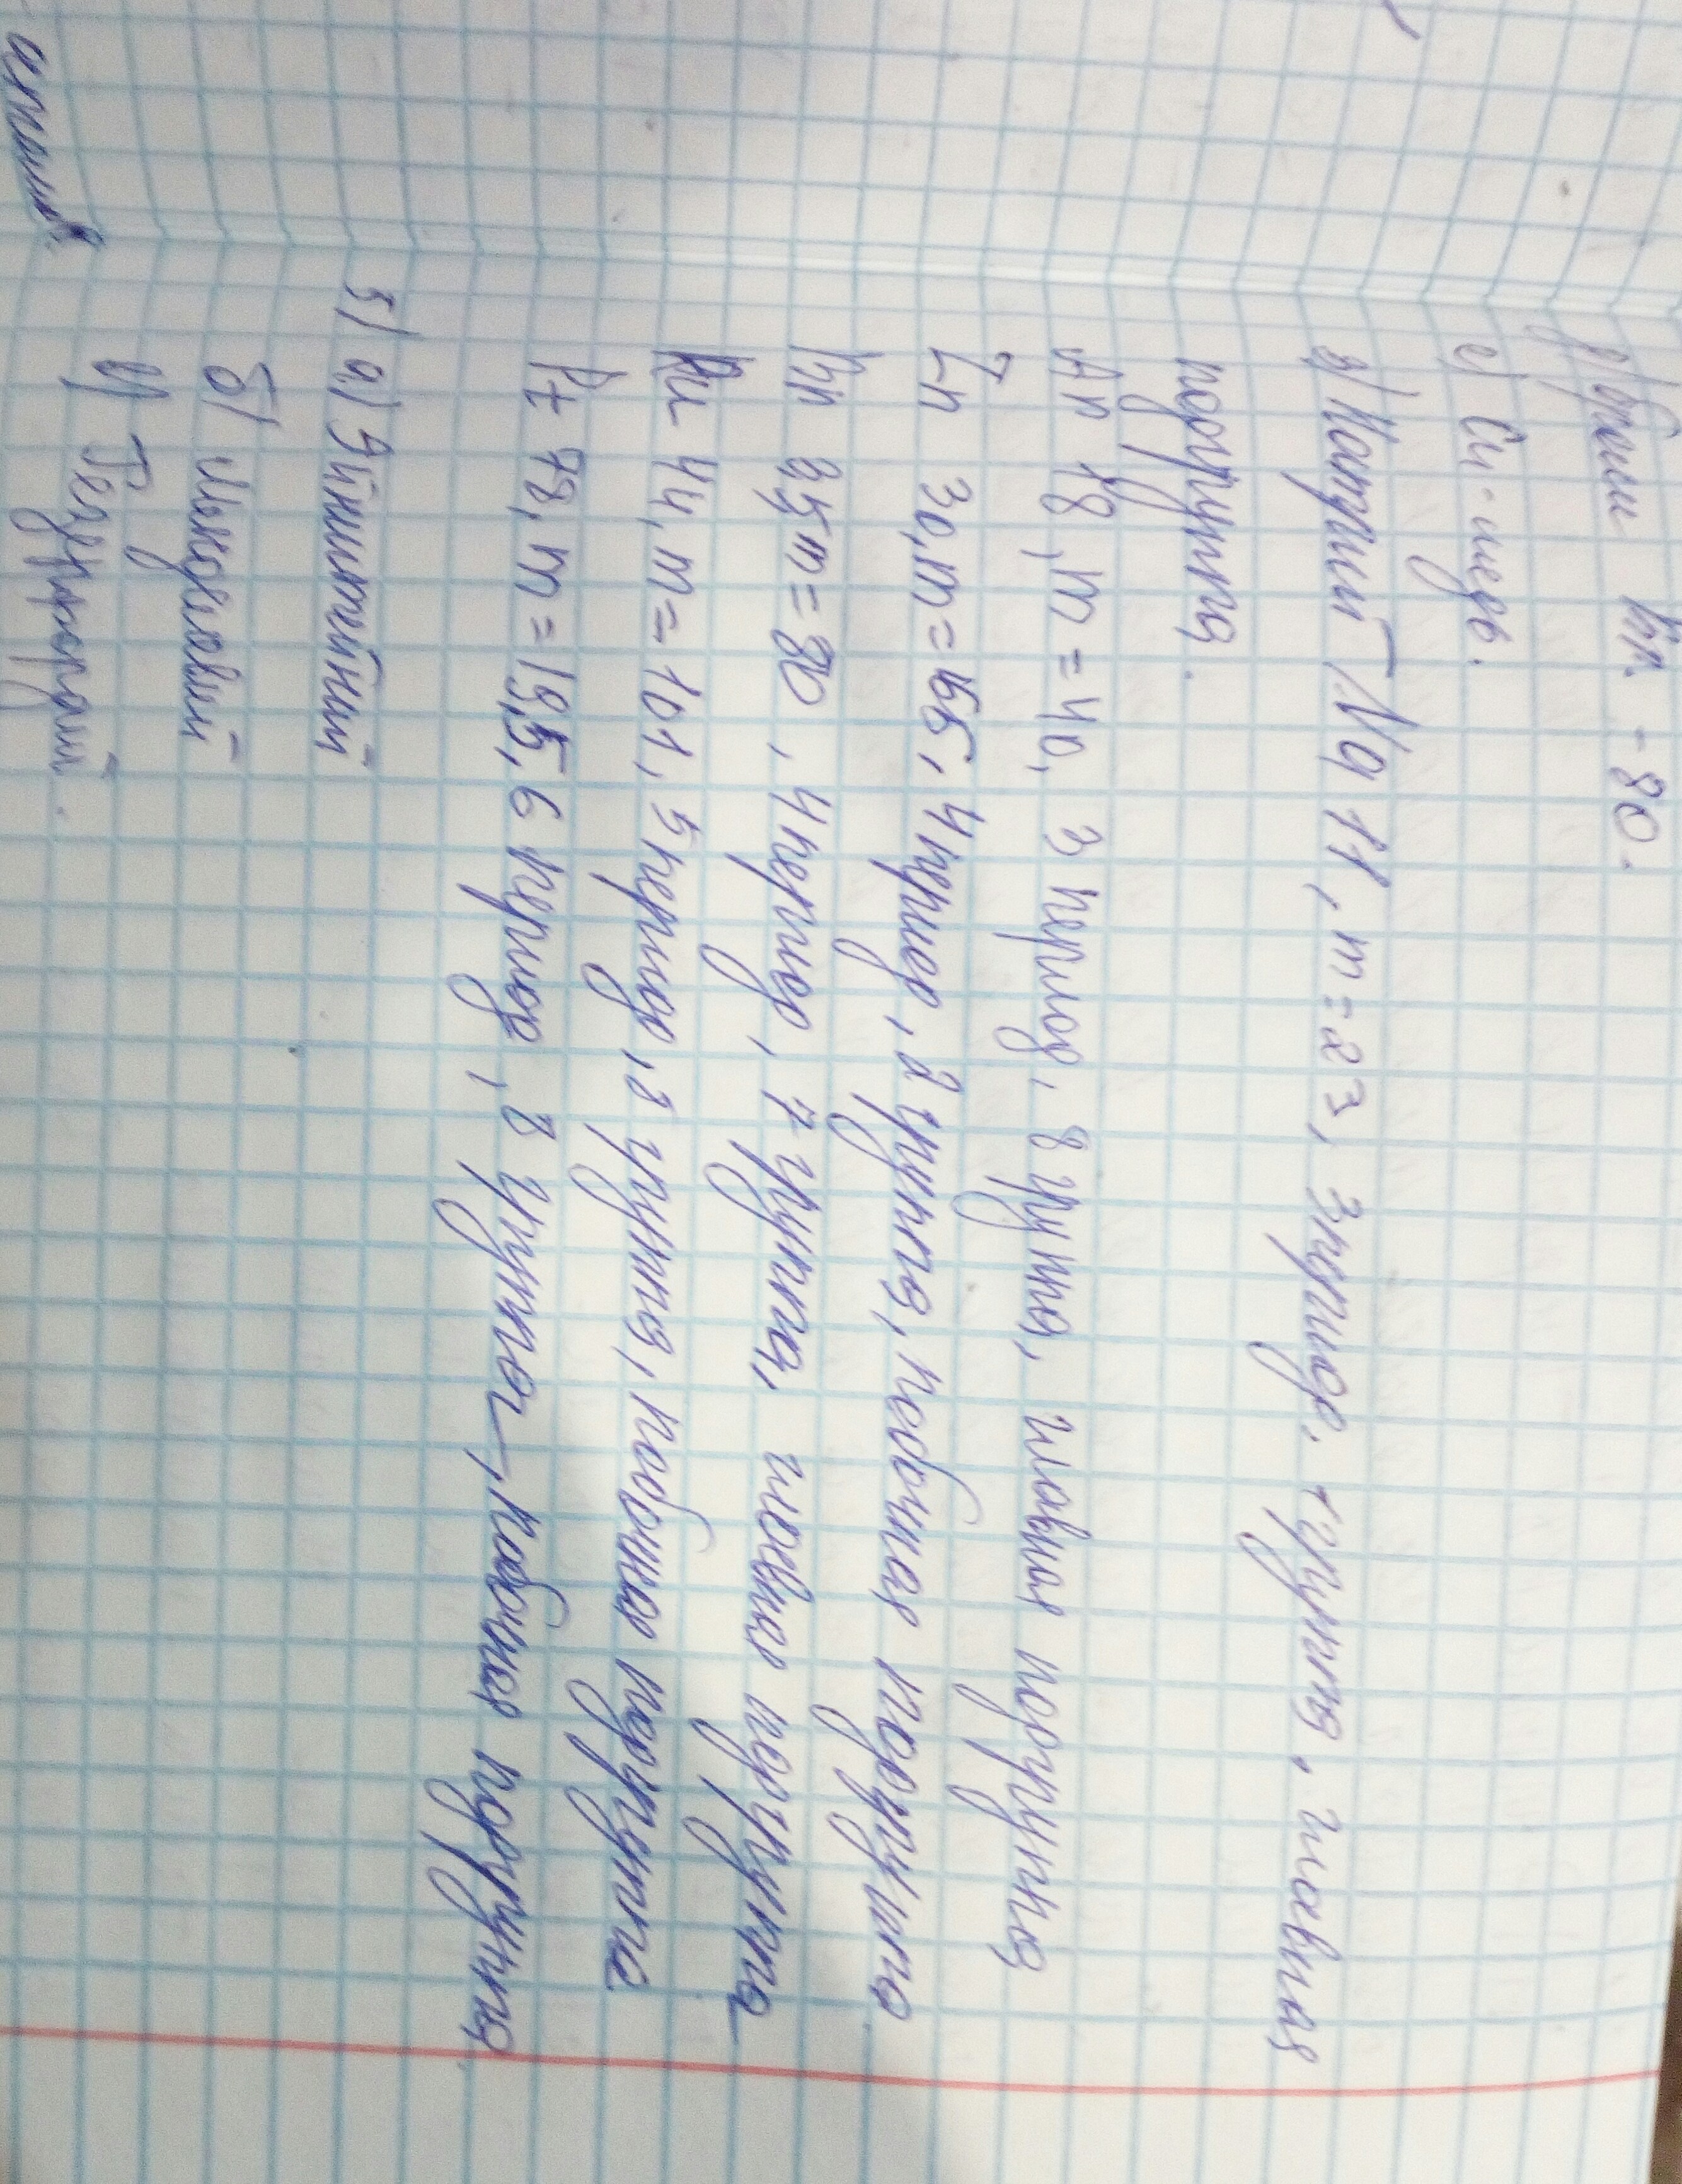 д) Бром Br. - 80.
е) Cu - медь.
в) Натрий Na 11, m = 23, 3 период, 1 группа, главная
подгруппа.
Ar 18, m = 40, 3 период, 8 группа, главная подгруппа
Zn 30, m = 65, 4 период, 2 группа, побочная подгруппа
Br 35 m = 80, 4 период, 7 группа, главная подгруппа
Ru 44, m = 101, 5 период, 8 группа, побочная подгруппа
Pt 78, m = 195, 6 период, 8 группа, побочная подгруппа
5) а) Эйнштейний
б) Менделевий
Резерфордий.
атомов.